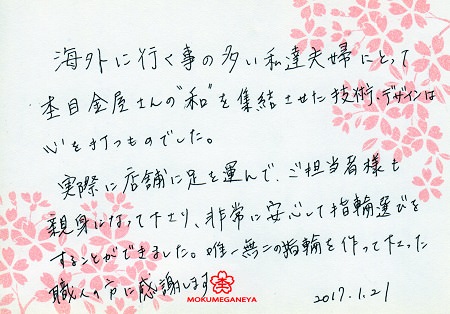 海外に行く事の多い私達夫婦にとって
杢目金屋さんの"和"を集結させた技術、デザインは
心を打つものでした。
実際に店舗に足を運んで、ご担当者様も
親身になって下さり、非常に安心して指輪選びを
することができました。唯一無二の指輪を作って下さった
職人の方に感謝します
MOKUMEGANEYA
2017.1.21